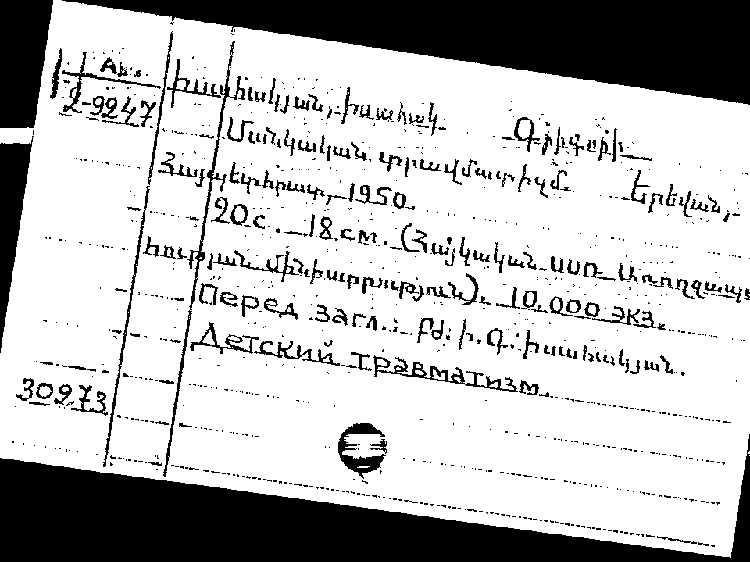 Իսահակյան, Իսահակ Գրիգորի
2-9247
Մանկական տրավմատիզմ. Երեվան,
Հայպետհրատ, 1950.
20 с. 18 см. (Հայկական ՍՍՌ Առողջապա-
հության մինիստրություն). 10.000 экз.
Перед загл.: բժ. Ի. Գ. Իսահակյան.
Детский травматизм.
30973